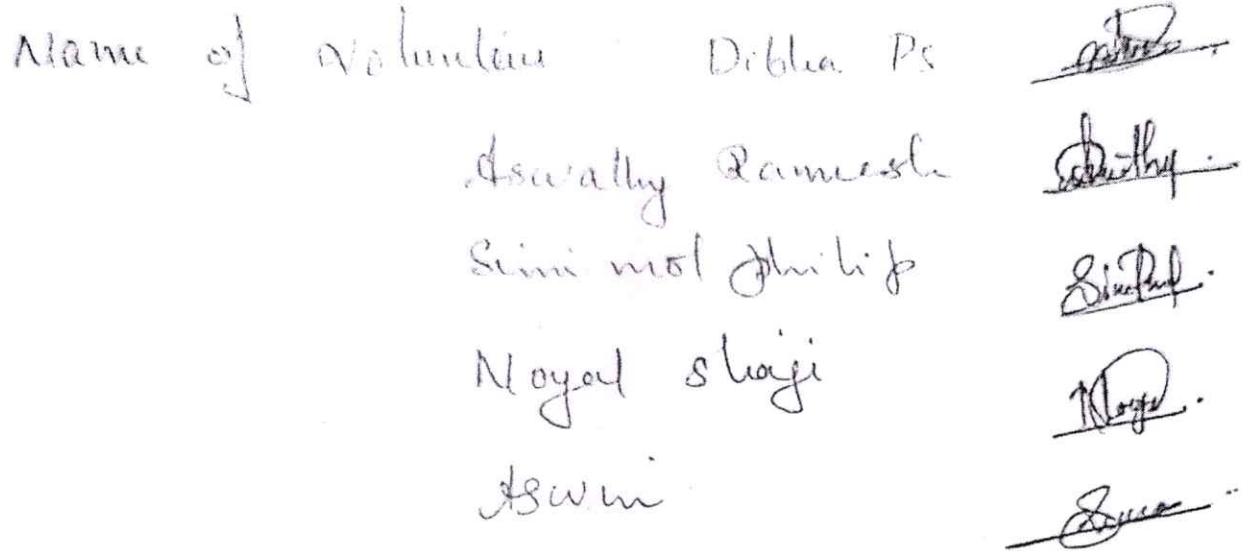 Name of Volunteers Dibha Ps
Aswathy Rameesh
Simi mol philip
Noyal shaji
Aswini